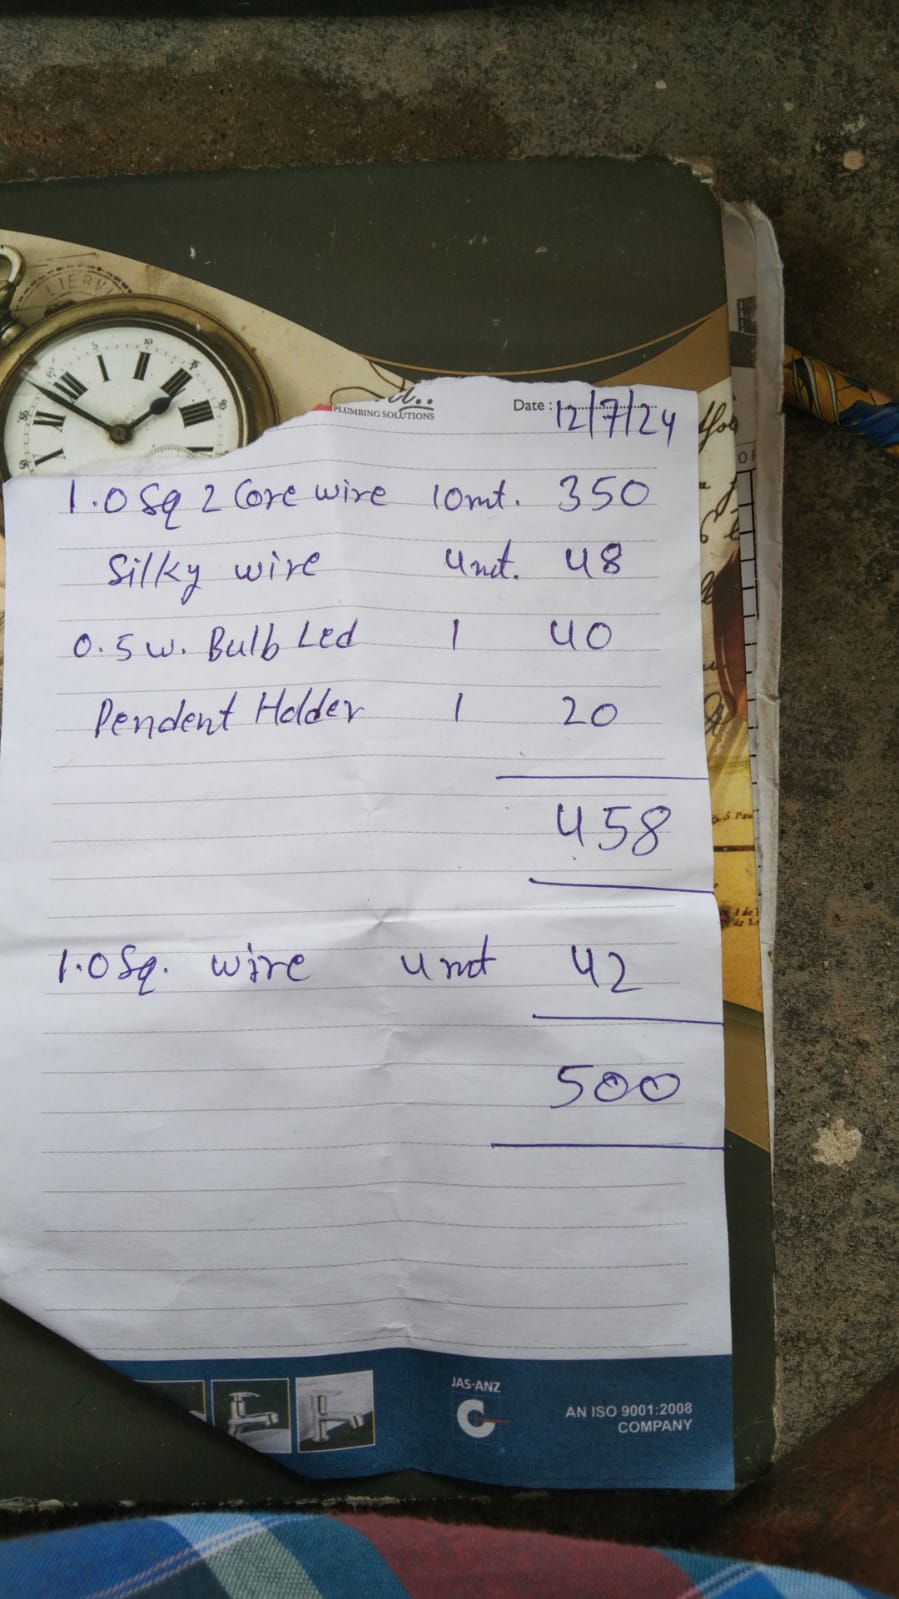 PLUMBING SOLUTIONS
Date : 12/7/24
1.0 Sq 2 Core wire 10mt. 350
Silky wire 4mt. 48
0.5 w. Bulb Led 1 40
Pendent Holder 1 20
458
1.0 Sq. wire 4mt 42
500
JAS-ANZ
AN ISO 9001:2008
COMPANY